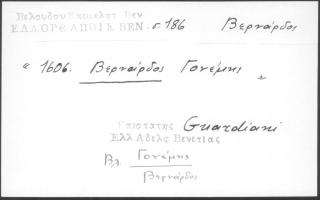 Βελουδου Επιτελστ Βεν
ΕΛΛΟΡΘ ΑΠΟΙΚ ΒΕΝ. σ. 186 Βερνάρδος
" 1606. Βερνάρδος Γονέμης "
Επιστατης Guardiani
Ελλ Αδελφ Βενετιας
Βλ. Γονέμης
Βερνάρδος